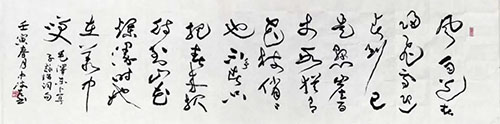 风雨送春
归飞雪迎
春到已
是悬崖百
丈冰犹有
花枝俏俏
也不争春只
把春来报
待到山花
烂漫时她
在丛中
笑
毛泽东卜算
子咏梅词句
壬寅春月